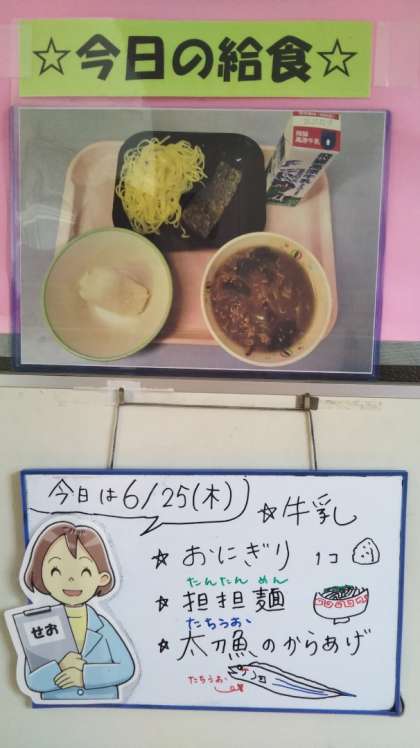 ☆今日の給食☆
今日は6/25(木)
☆牛乳
☆おにぎり 1コ
たんたん めん
☆担担麺
たちうお
☆太刀魚のからあげ
たちうお
せお